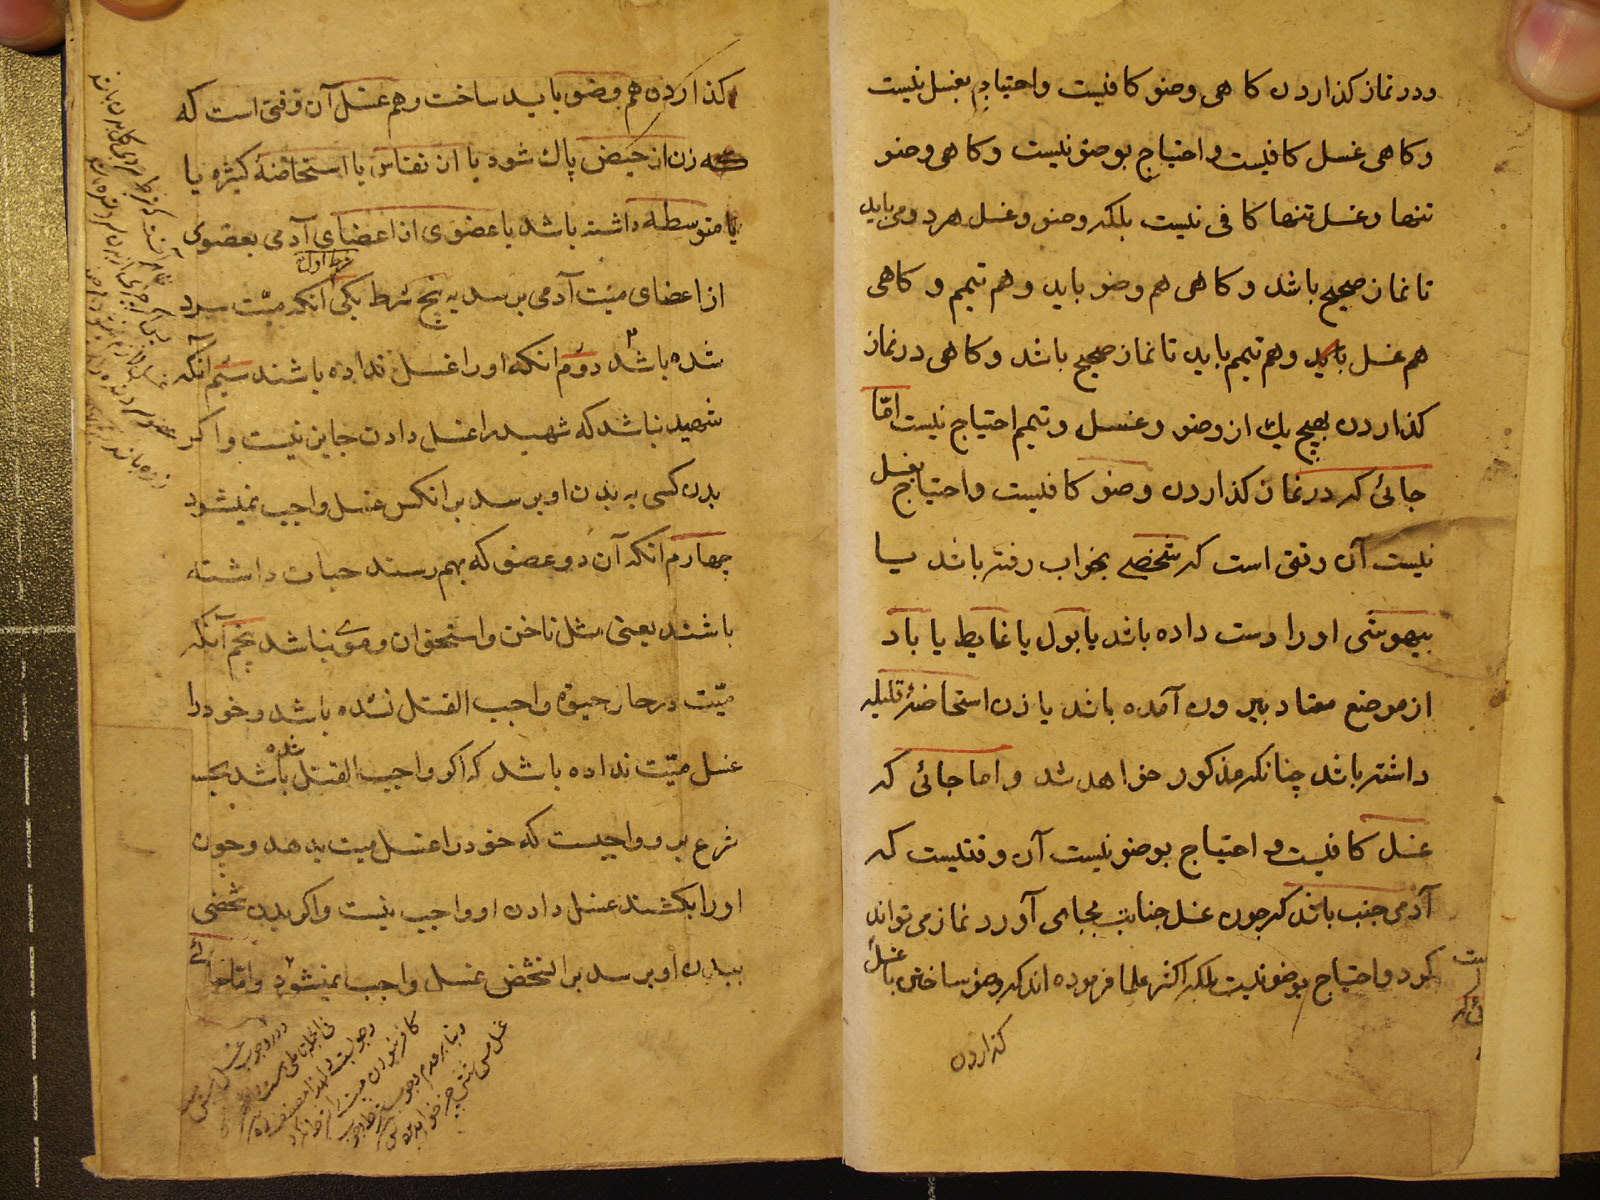 ودر نماز كذاردن كاهى وضو كافيست واحتياج بغسل نيست
وكاهى غسل كافيست واحتياج بوضو نيست وكاهى وضو
تنها وغسل تنها كافى نيست بلكه وضو وغسل هردو مى بايد
تا نماز صحيح باشد وكاهى هم وضو بايد وهم تيمم وكاهى
هم غسل بايد وهم تيمم بايد تا نماز صحيح باشد وكاهى در نماز
كذاردن بهيچ يك از وضو وغسل وتيمم احتياج نيست امّا
جائى كه در نماز كذاردن وضو كافيست واحتياج بغسل
نيست آن وقتى است كه شخصى بخواب رفته باشد يا
بيهوشى اورا دست داده باشد يا بول يا غايط يا باد
از موضع معتاد بيرون آمده باشد يا زن استحاضهٔ قليله
داشته باشد چنانكه مذكور خواهد شد واما جائى كه
غسل كافيست و احتياج بوضو نيست آن وقتيست كه
آدمى جنب باشد كه چون غسل جنابت بجاى آورد نماز مى تواند
كرد واحتياج بوضو نيست بلكه اكثر علما فرموده اند كه وضو ساختن با غسل
كذاردن
كذاردن هم وضو بايد ساخت وهم غسل آن وقتى است كه
كه زن از حيض پاك شود يا از نفاس يا استحاضهٔ كثيره يا
يا متوسطه داشته باشد يا عضوى از اعضاى آدمى بعضوى
شرط اول
از اعضاى ميّت آدمى برسد به پنج شرط يكى آنكه ميّت سرد
شده باشد دوّم انكه اورا غسل نداده باشند سيّم آنكه
شهيد نباشد كه شهيد را غسل دادن جايز نيست واكر
بدن كسى به بدن او برسد بر انكس غسل واجب نميشود
چهارم انكه آن دو عضو كه بهم رسند حيات داشته
باشند يعنى مثل ناخن واستخوان وموى نباشد پنجم آنكه
ميّت در حاز حيوة واجب القتل نشده باشد وخود را
غسل ميّت نداده باشد كه اكر واجب القتل شده باشد بحسب
شرع برو واجبست كه خود را غسل ميت بدهد وچون
اورا بكشند غسل دادن او واجب نيست واكر بدن شخصى
ببدن او برسد بر النخص غسل واجب نميشود وامّا جائى